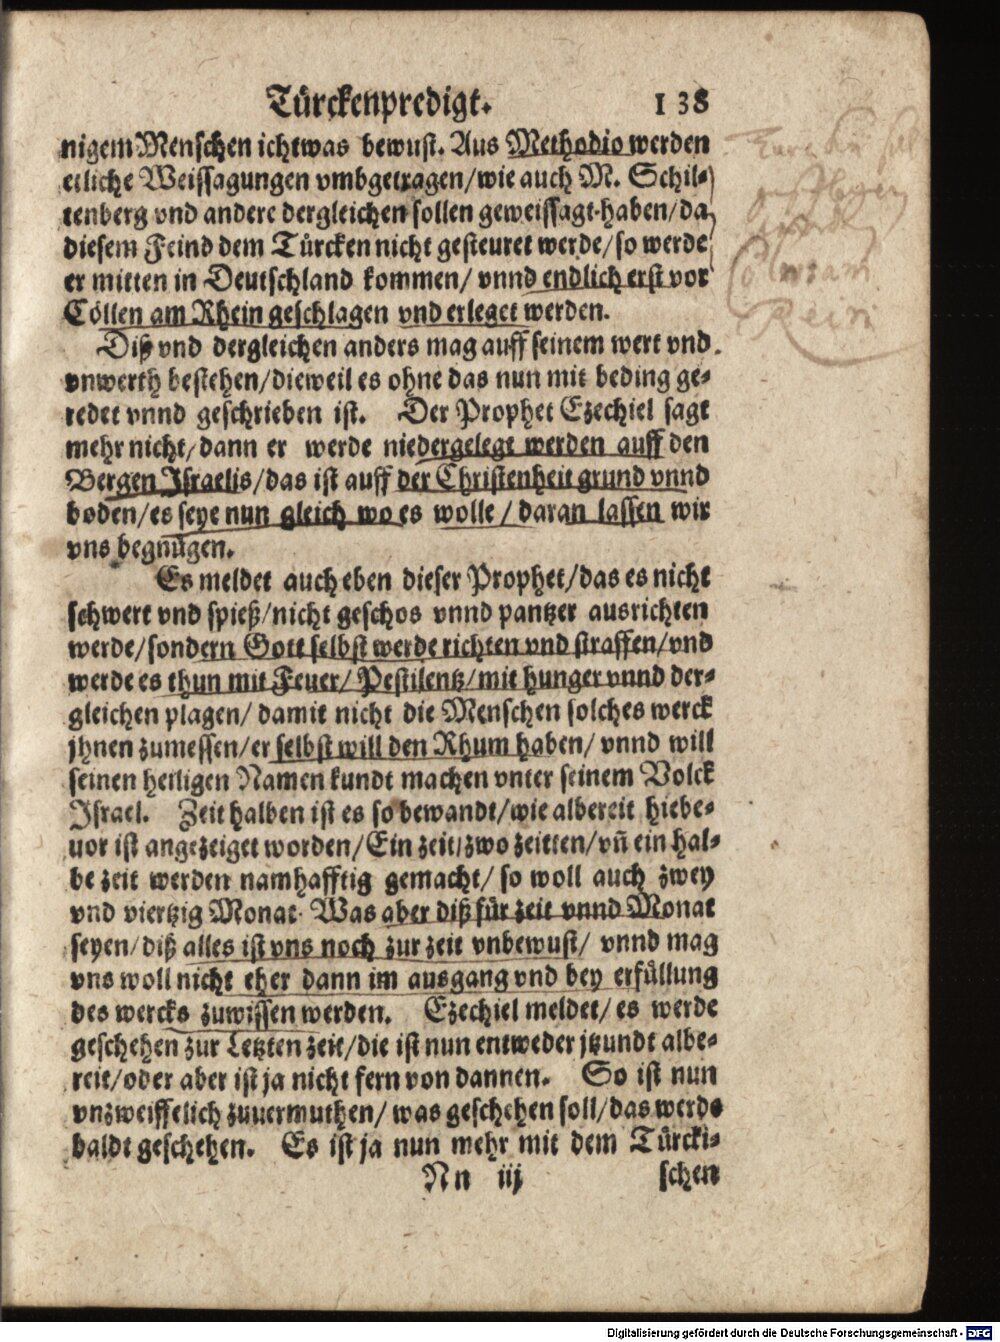 Türckenpredigt. 138
nigem Menschen ichtwas bewust. Aus Methodio werden
etliche Weissagungen vmbgetragen/wie auch M. Schil-
tenberg vnd andere dergleichen sollen geweissagt haben/da
diesem Feind dem Türcken nicht gesteuret werde/so werde
er mitten in Deutschland kommen/ vnnd endlich erst vor
Cöllen am Rhein geschlagen vnd erleget werden.
Diß vnd dergleichen anders mag auff seinem wert vnd
vnwerth bestehen/dieweil es ohne das nun mit beding ge-
redet vnnd geschrieben ist. Der Prophet Ezechiel sagt
mehr nicht/dann er werde niedergelegt werden auff den
Bergen Israelis/das ist auff der Christenheit grund vnnd
boden/es seye nun gleich wo es wolle/daran lassen wir
vns begnügen.
Es meldet auch eben dieser Prophet/das es nicht
schwert vnd spieß/nicht geschos vnnd pantzer ausrichten
werde/sondern Gott selbst werde richten vnd straffen/vnd
werde es thun mit Feuer/ Pestilentz/mit hunger vnnd der-
gleichen plagen/ damit nicht die Menschen solches werck
jhnen zumessen/er selbst will den Rhum haben/ vnnd will
seinen heiligen Namen kundt machen vnter seinem Volck
Israel. Zeit halben ist es so bewandt/wie albereit hiebe-
uor ist angezeiget worden/Ein zeit/zwo zeitten/vñ ein hal-
be zeit werden namhafftig gemacht/ so woll auch zwey
vnd viertzig Monat. Was aber diß für zeit vnnd Monat
seyen/diß alles ist vns noch zur zeit vnbewust/ vnnd mag
vns woll nicht eher dann im ausgang vnd bey erfüllung
des wercks zuwissen werden. Ezechiel meldet/ es werde
geschehen zur Letzten zeit/die ist nun entweder jtzundt albe-
reit/oder aber ist ja nicht fern von dannen. So ist nun
vnzweiffelich zuuermuthen/ was geschehen soll/das werde
baldt geschehen. Es ist ja nun mehr mit dem Türcki-
Nn iij schen
Rein
Digitalisierung gefördert durch die Deutsche Forschungsgemeinschaft - DFG